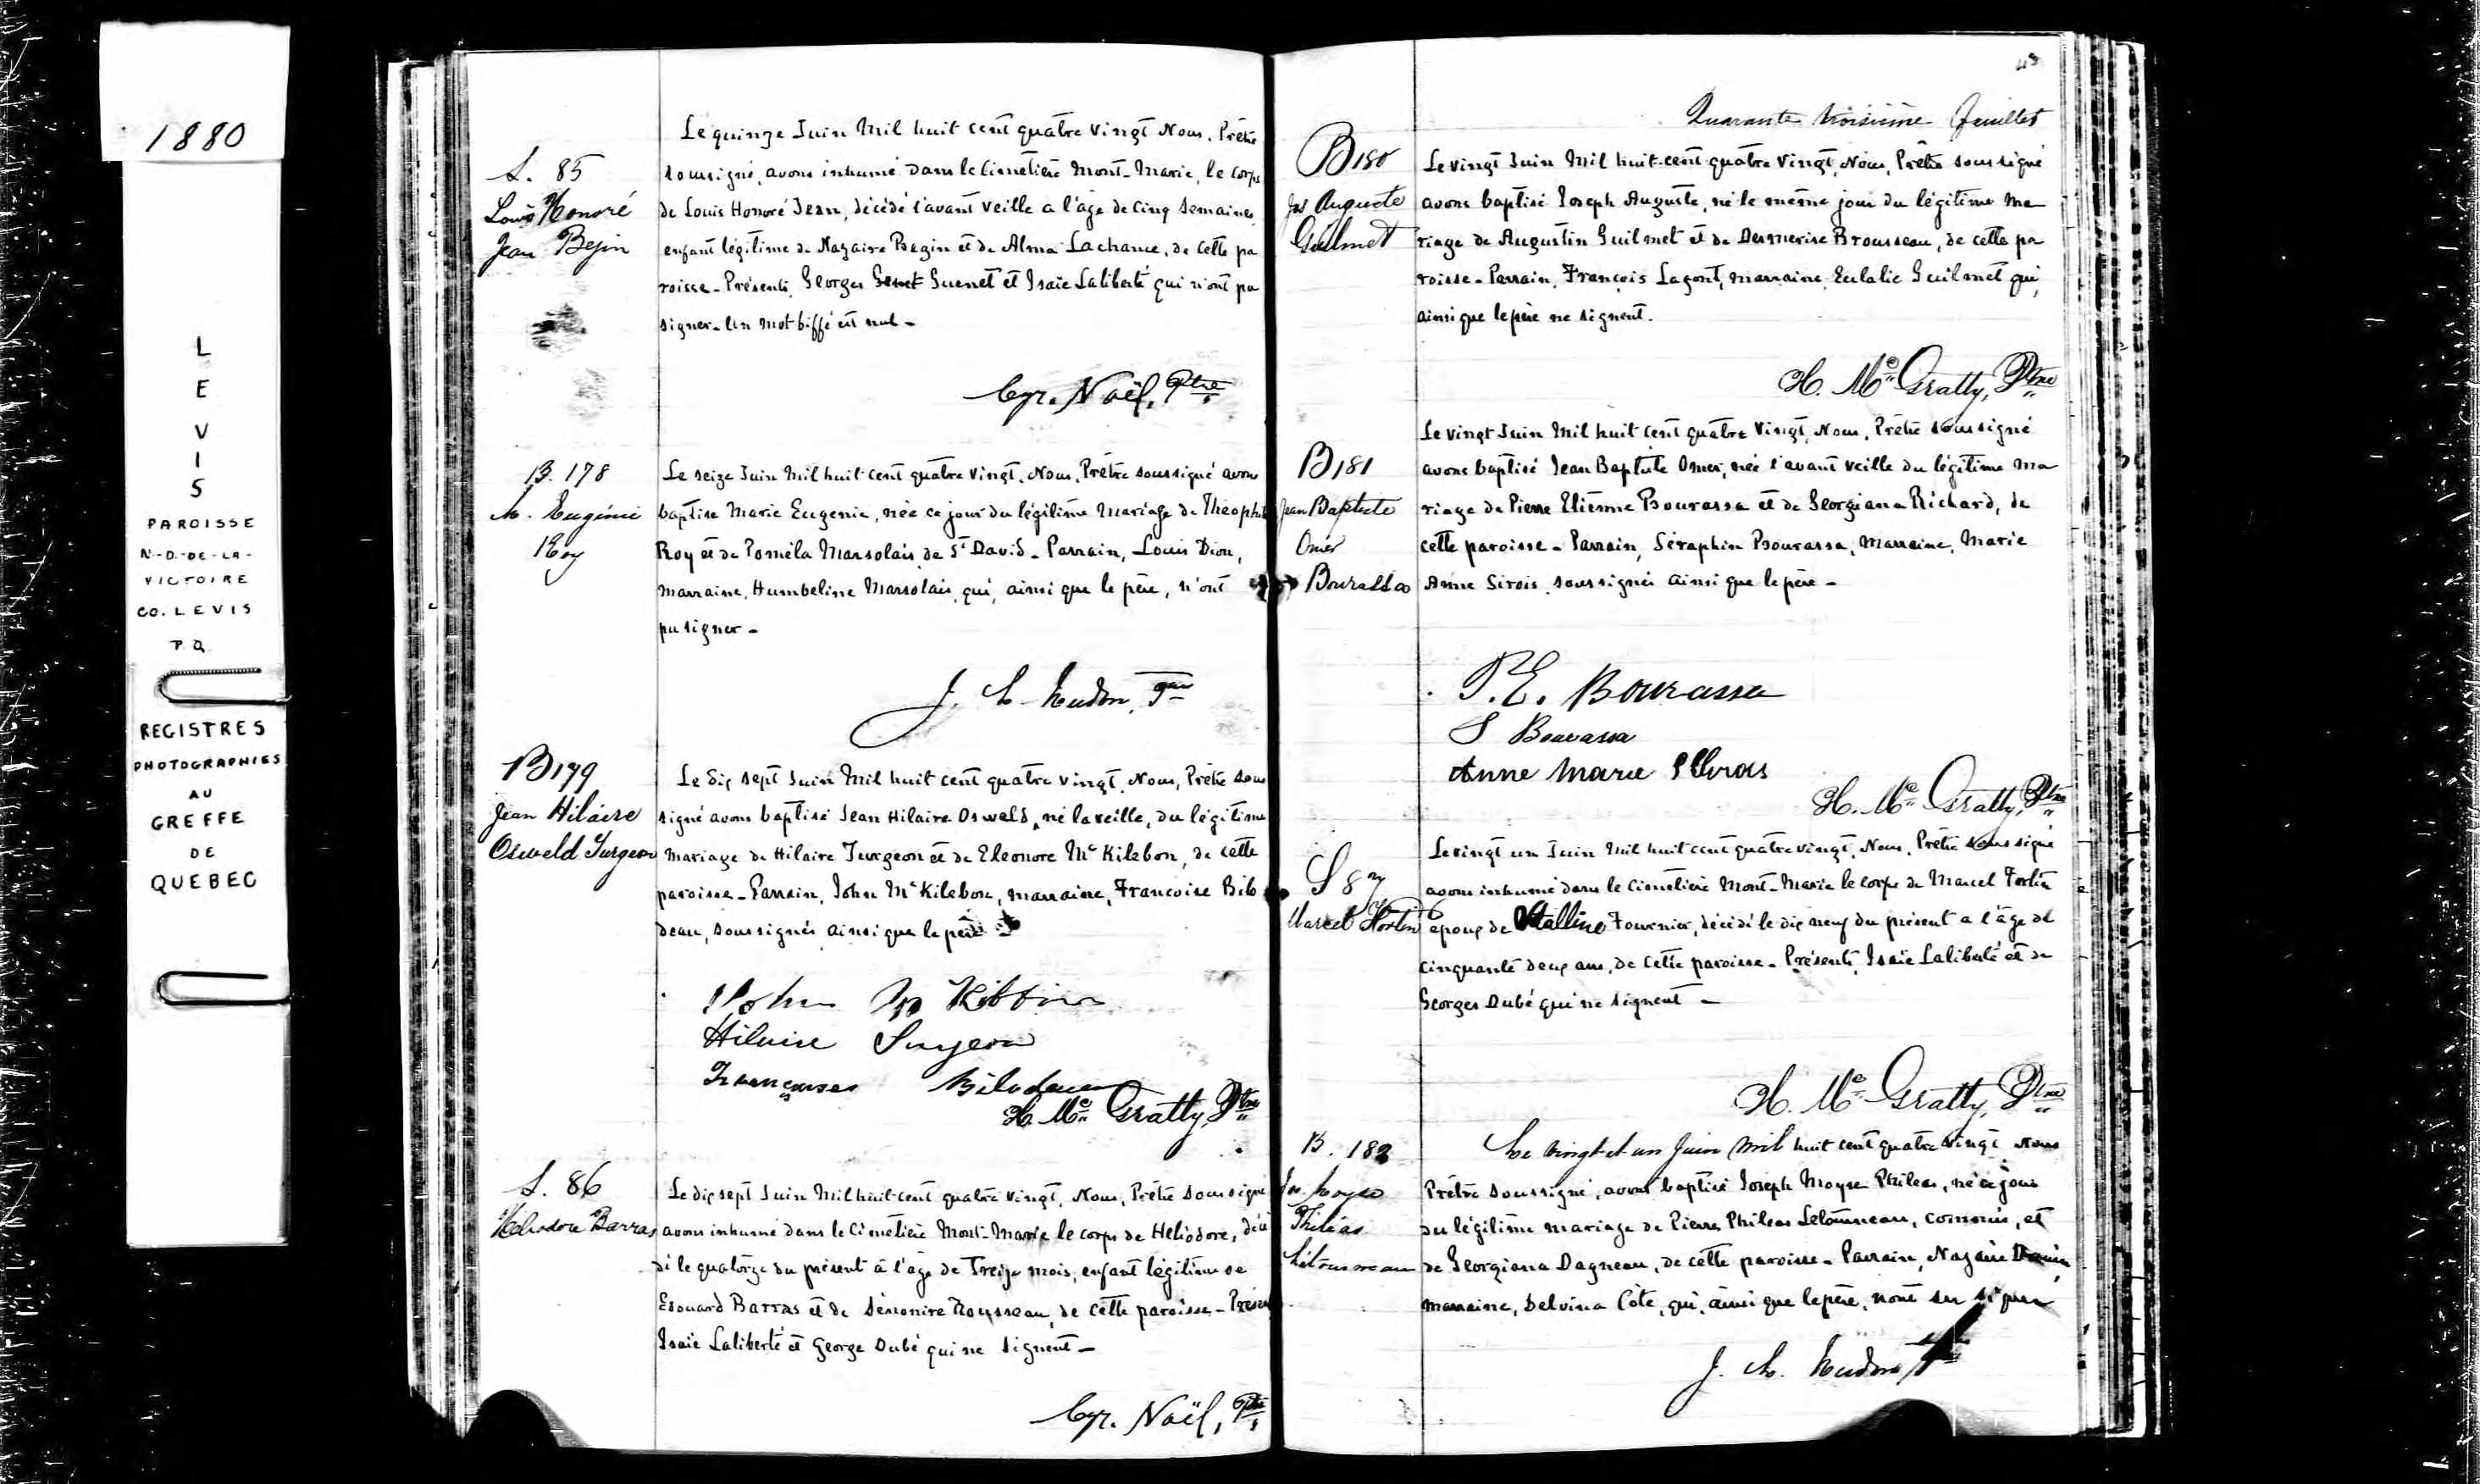 1880
L
E
V
I
S
PAROISSE
N.-D.-DE-LA-
VICTOIRE
CO. LEVIS
P.Q.
REGISTRES
PHOTOGRAPHIES
AU
GREFFE
DE
QUEBEC
S. 85
Louis Honoré
Jean Bejin
Le quinze Juin Mil huit cent quatre vingt Nous, Prêtre
soussigné, avons inhumé dans le Cimetière Mont-Marie, le corps
de Louis Honoré Jean, décédé l'avant veille a l'âge de Cinq Semaines
enfant légitime de Nazaire Begin et de Alma Lachance, de cette pa
roisse - Présents, Georges Genet Guenet et Isaïe Laliberté qui n'ont pu
signer - Un mot biffé est nul -
Cyr. Noël, Ptre
B. 178
M. Eugénie
Roy
Le seize Juin Mil huit cent quatre vingt, Nous, Prêtre soussigné avons
baptise Marie Eugenie, née ce jour du légitime mariage de Théophile
Roy et de Poméla Marsolais de St David - Parrain, Louis Dion,
marraine, Humbeline Marsolais, qui, ainsi que le père, n'ont
pu signer -
J. Hudon, Ptre
B179
Jean Hilaire
Osweld Turgeon
Le dix sept Juin Mil huit cent quatre vingt, Nous, Prêtre sous
signé avons baptisé Jean Hilaire Oswald, né la veille, du légitime
mariage de Hilaire Turgeon et de Eleonore Mc Kilebon, de cette
paroisse - Parrain, John Mc Kilebon, marraine, Francoise Bilo
deau, soussignés ainsi que le père
John Mc Kibbin
Hilaire Turgeon
Françoise Bilodeau
H. Mc Gratty, Ptre
S. 86
Héliodore Barras
Le dix sept Juin Mil huit cent quatre vingt, Nous, Prêtre soussigné
avons inhumé dans le Cimetière Mont-Marie le corps de Héliodore, décé
dé le quatorze du présent à l'âge de Treize mois, enfant légitime de
Edouard Barras et de Démonire Rousseau, de cette paroisse - Présents
Isaïe Laliberté et George Dubé qui ne signent -
Cyr. Noël, Ptre
43
Quarante troisième feuillet
B180
Jos Auguste
Guilmet
Le vingt Juin Mil huit cent quatre vingt, Nous, Prêtre soussigné
avons baptisé Joseph Auguste, né le même jour du légitime ma
riage de Augustin Guilmet et de Desmerise Brousseau, de cette pa
roisse - Parrain, François Lagont, marraine, Eulalie Guilmet qui,
ainsi que le père ne signent.
H. Mc Gratty, Ptre
B181
Jean Baptiste
Omer
Bourassa
Le vingt Juin Mil huit cent quatre vingt, Nous, Prêtre soussigné
avons baptisé Jean Baptiste Omer, née l'avant veille du légitime ma
riage de Pierre Etienne Bourassa et de Georgiana Richard, de
cette paroisse - Parrain, Séraphin Bourassa, Marraine, Marie
Anne Sirois, soussignés ainsi que le père -
P.E. Bourassa
S Bourassa
Anne Marie Sirois
H. Mc Gratty, Ptre
S 87
Marcel Fortin
Le vingt un Juin Mil huit cent quatre vingt, Nous, Prêtre soussigné
avons inhumé dans le Cimetière Mont-Marie le corps de Marcel Fortin
epoux de Fournier, décédé le dix neuf du présent a l'âge de
cinquante deux ans, de cette paroisse - Présents, Isaïe Laliberté et de
Georges Dubé qui ne signent -
H. Mc Gratty, Ptre
B. 182
Jos. Moyse
Philéas
Létourneau
Le vingt et un Juin Mil huit cent quatre vingt Nous
Prêtre soussigné, avons baptisé Joseph Moyse Phileas, né ce jour
du légitime mariage de Pierre Phileas Letourneau, commis, et
de Georgiana Dagneau, de cette paroisse - Parrain, Nazaire
marraine, Delvina Côté, qui, ainsi que le père, n'ont su signer
J. Hudon Ptre